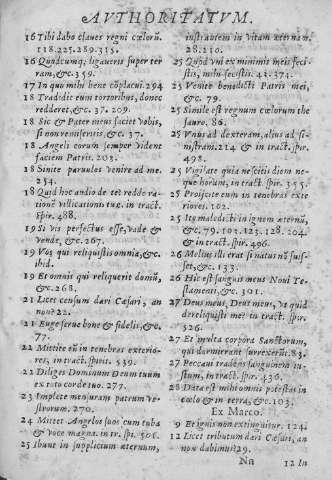 AVTHORITATVM.
16 Tibi dabo claues regni cœlorũ.
118.225.289.315.
16 Quodcumq; ligaueris super ter
ram, &c.359.
17 In quo mihi bene cōplacui. 294
18 Tradidit eum tortoribus, donec
redderet, &c. 37. 209.
18 Sic & Pater meus faciet vobis,
si non remiseritis, &c. 37.
18 Angeli eorum semper vident
faciem Patris. 203.
18 Sinite paruulos venire ad me.
254.
18 Quid hoc audio de te? redde ratio
nē villicationis tuæ. in tract.
spir. 488.
19 Si vis perfectus esse, vade &
vende, &c. 267.
19 Vos qui reliquistis omnia, &c.
ibid.
19 Et omnis qui reliquerit domũ,
&c. 268.
21 Licet censum dari Cæsari, an
non? 22.
21 Euge serue bone & fidelis, &c.
77.
22 Mittite eũ in tenebras exterio-
res, in tract. spirit. 539.
22 Diliges Dominum Deum tuum
ex toto corde tuo. 277.
23 Implete mensuram patrum ve-
strorum. 270.
24 Mittet Angelos suos cum tuba
& voce magna. in tr. spi. 506.
25 Ibunt in supplicium æternum,
iusti autem in vitam æternam.
28. 210.
25 Quod vni ex minimis meis feci-
stis, mihi fecistis. 41. 374.
25 Venite benedicti Patris mei,
&c. 79.
25 Simile est regnum cœlorum the
sauro. 86.
25 Vnus ad dexteram, alius ad si-
nistram. 214 & in tract. spir.
498.
25 Vigilate quia nescitis diem ne-
que horam, in tract. spir. 355.
25 Proijcite eum in tenebras exte
riores. 102.
25 Ite maledicti in ignem æternũ,
&c. 79. 102. 123. 128. 204.
& in tract. spir. 496.
26 Melius illi erat si natus nō fuis-
set, &c. 133.
26 Hic est sanguis meus Noui Te-
stamenti, &c. 301.
27 Deus meus, Deus meus, vt quid
dereliquisti me? in tract. spir.
526.
27 Et multa corpora Sanctorum,
qui dormierant surrexerũt. 83.
27 Peccaui tradens sanguinem iu-
stum, in tract. spir. 436.
28 Data est mihi omnis potestas in
cœlo & in terra, &c. 103.
Ex Marco.
9 Et ignis non extinguitur. 124.
12 Licet tributum dari Cæsari, an
non dabimus? 29.
Nn 12 In